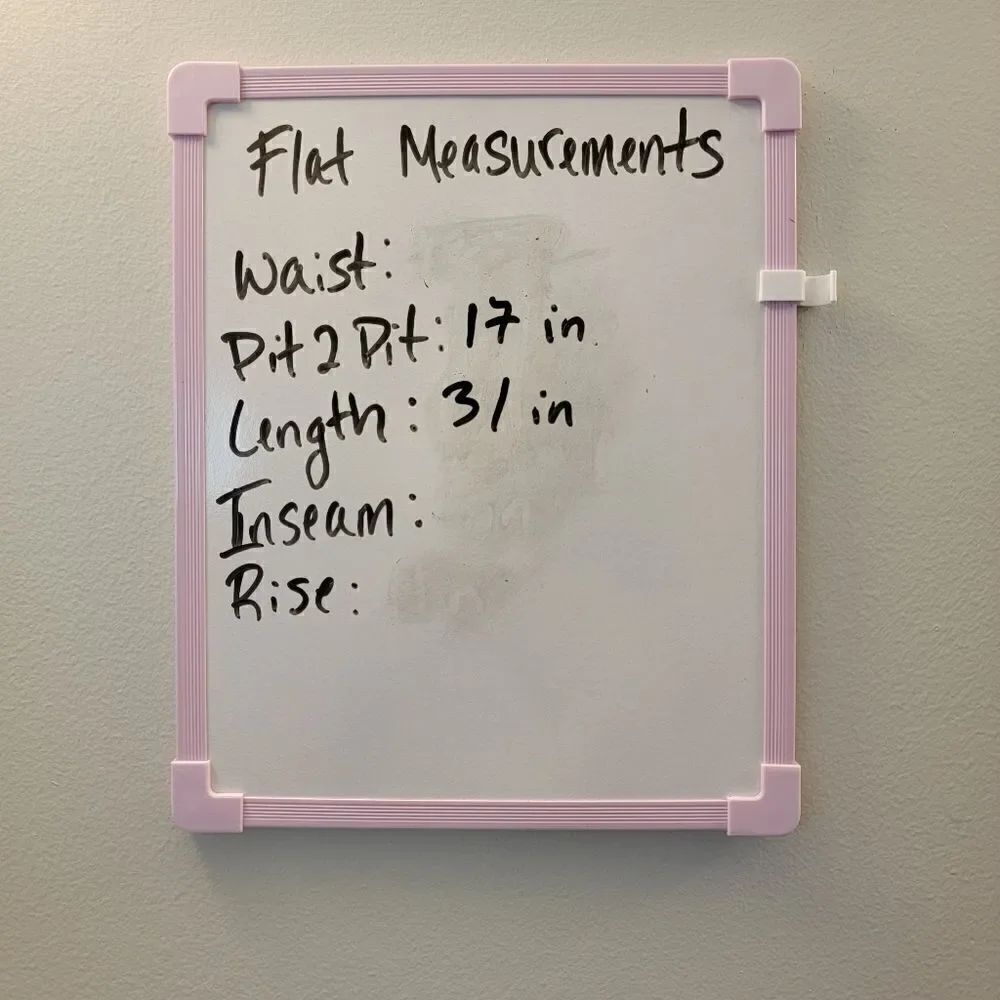 Flat Measurements
Waist:
Pit 2 Pit: 17 in
Length: 31 in
Inseam:
Rise: